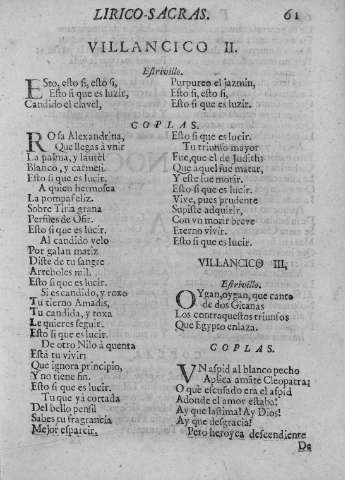 LIRICO-SACRAS. 61
VILLANCICO II.
Estrivillo.
ESto, esto si, esto si,
Esto si que es luzir,
Candido el clavel,
Purpureo el jazmin,
Esto si, esto si,
Esto si que es luzir.
COPLAS.
ROsa Alexandrina,
Que llegas à vnir
La palma, y laurèl
Blanco, y carmesi.
Esto si que es lucir.
A quien hermosea
La pompa feliz.
Sobre Tiria grana
Perfiles de Ofir.
Esto si que es lucir.
Al candido velo
Por galan matiz
Diste de tu sangre
Arreboles mil.
Esto si que es lucir.
Si es candido, y roxo
Tu tierno Amadis,
Tu candida, y roxa
Le quieres seguir.
Esto si que es lucir.
De otro Nilo à quenta
Està tu vivir;
Que ignora principio,
Y no tiene fin.
Esto si que es lucir.
Tu que ya cortada
Del bello pensil
Sabes tu fragrancia
Mejor esparcir.
Esto si que es lucir.
Tu triunfo mayor
Fue, que el de Judith;
Que aquel fue matar,
Y este fue morir.
Esto si que es lucir.
Vive, pues prudente
Supiste adquirir,
Con vn morir breve
Eterno vivir.
Esto si que es lucir.
VILLANCICO III,
Estrivillo.
OYgan, oygan, que canto
de dos Gitanas
Los contrapuestos triunfos
Que Egypto enlaza.
COPLAS.
VN aspid al blanco pecho
Aplica amãte Cleopatra;
O què escusado era el aspid
Adonde el amor estaba!
Ay que lastima! Ay Dios!
Ay que desgracia!
Pero heroyca descendiente
De